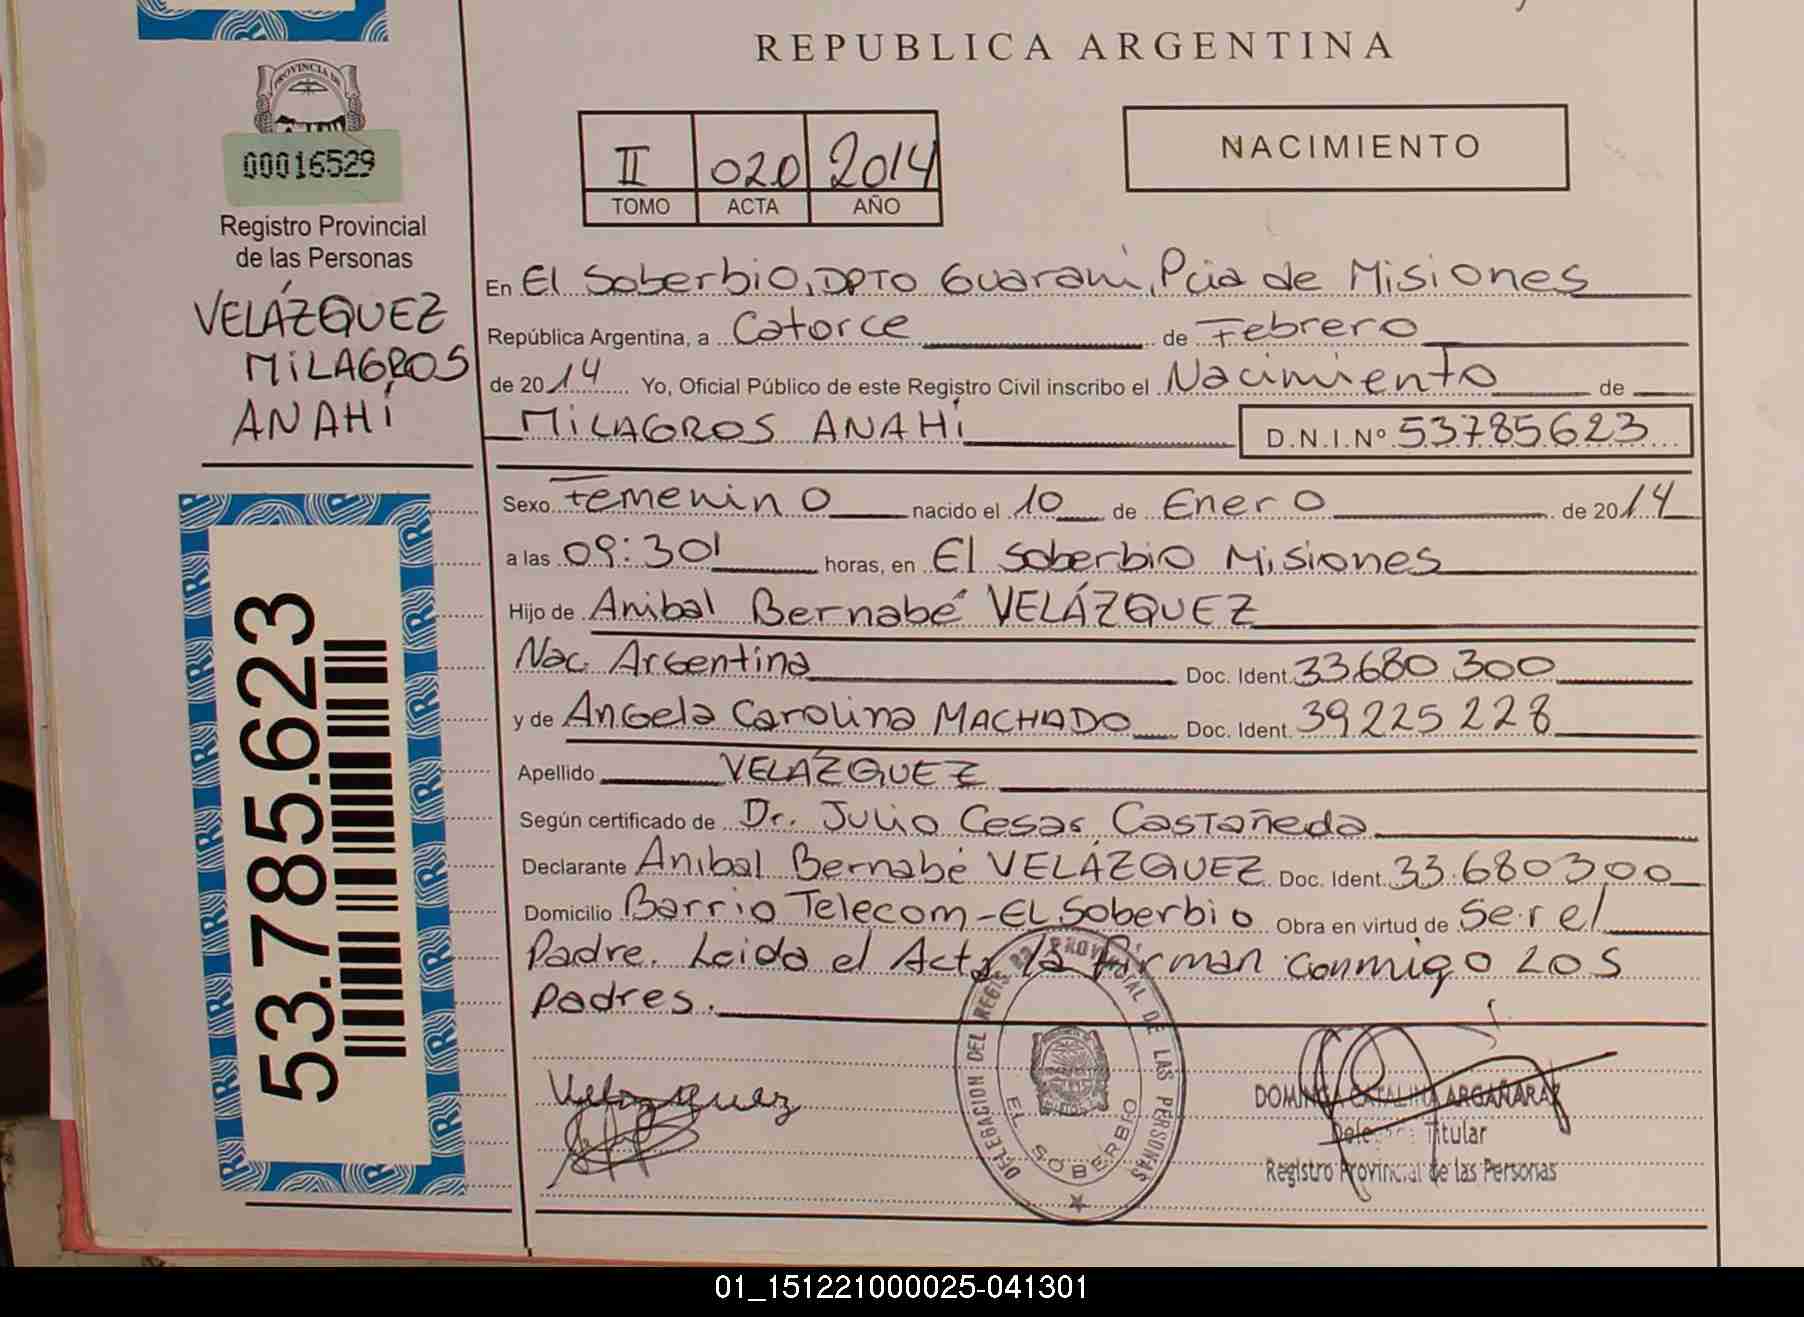 REPUBLICA ARGENTINA
PROVINCIA DE
00016529
Registro Provincial
de las Personas
VELÁZQUEZ
MILAGROS
ANAHÍ
53.785.623
II 020 2014
TOMO ACTA AÑO
NACIMIENTO
En El Soberbio, DPTO Guaraní, Pcia de Misiones
República Argentina, a Catorce de Febrero
de 2014 Yo, Oficial Público de este Registro Civil inscribo el Nacimiento de
MILAGROS ANAHÍ D.N.I.Nº 53785623
Sexo Femenino nacido el 10 de Enero de 2014
a las 09:30' horas, en El Soberbio Misiones
Hijo de Anibal Bernabé VELÁZQUEZ
Nac. Argentina Doc. Ident. 33.680 300
y de Angela Carolina MACHADO Doc. Ident. 39225228
Apellido VELÁZQUEZ
Según certificado de Dr. Julio Cesar Castañeda
Declarante Anibal Bernabé VELÁZQUEZ Doc. Ident. 33.680300
Domicilio Barrio Telecom - EL Soberbio Obra en virtud de Ser el
Padre. Leida el Acta la firman conmigo Los
padres.
Velazquez
DELEGACION DEL REGISTRO PROVINCIAL DE LAS PERSONAS
EL SOBERBIO
DOMINGA CATALINA ARGAÑARAZ
Delegada Titular
Registro Provincial de las Personas
01_151221000025-041301